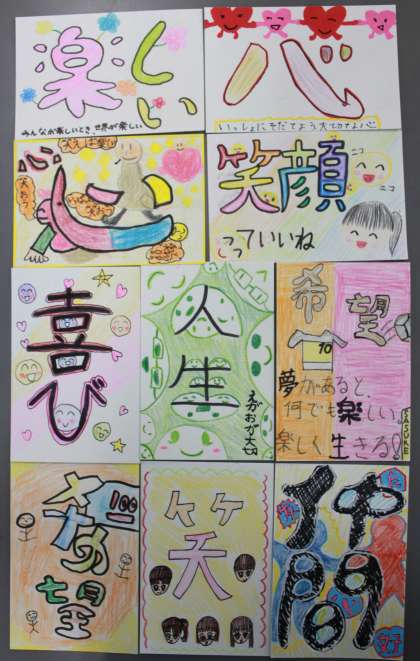 楽しい
みんなが楽しいとき、世界が楽しい
心
いっしょにそだてよう大切な心
心
笑顔
ニコ
ニコ
っていいね
喜び
人生
えがおが大切
希望
10
夢があると、
何でも楽しい
楽しく生きる!
SASUKE
希望
笑
仲間
好